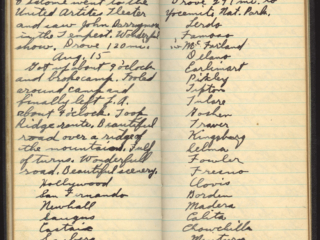 I & Tom went to the
United Artists Theater
and saw John Barrymore
in the Tempest. Wonderful
show. Drove 120 mi.
Aug. 15
Got up about 7 o'clock
and broke camp. Fooled
around camp and
finally left L.A.
about 9 o'clock. Took
Ridge route. Beautiful
road over a ridge of
the mountains. Full
of turns. Wonderful
road. Beautiful scenery.
Hollywood
San Fernando
Newhall
Saugus
Castaic
Drove 291 mi. to
Yosemite Nat. Park.
Lerdo
Famoso
McFarland
Delano
Earlimart
Pixley
Tipton
Tulare
Goshen
Traver
Kingsburg
Selma
Fowler
Fresno
Clovis
Borden
Madera
Califa
Chowchilla